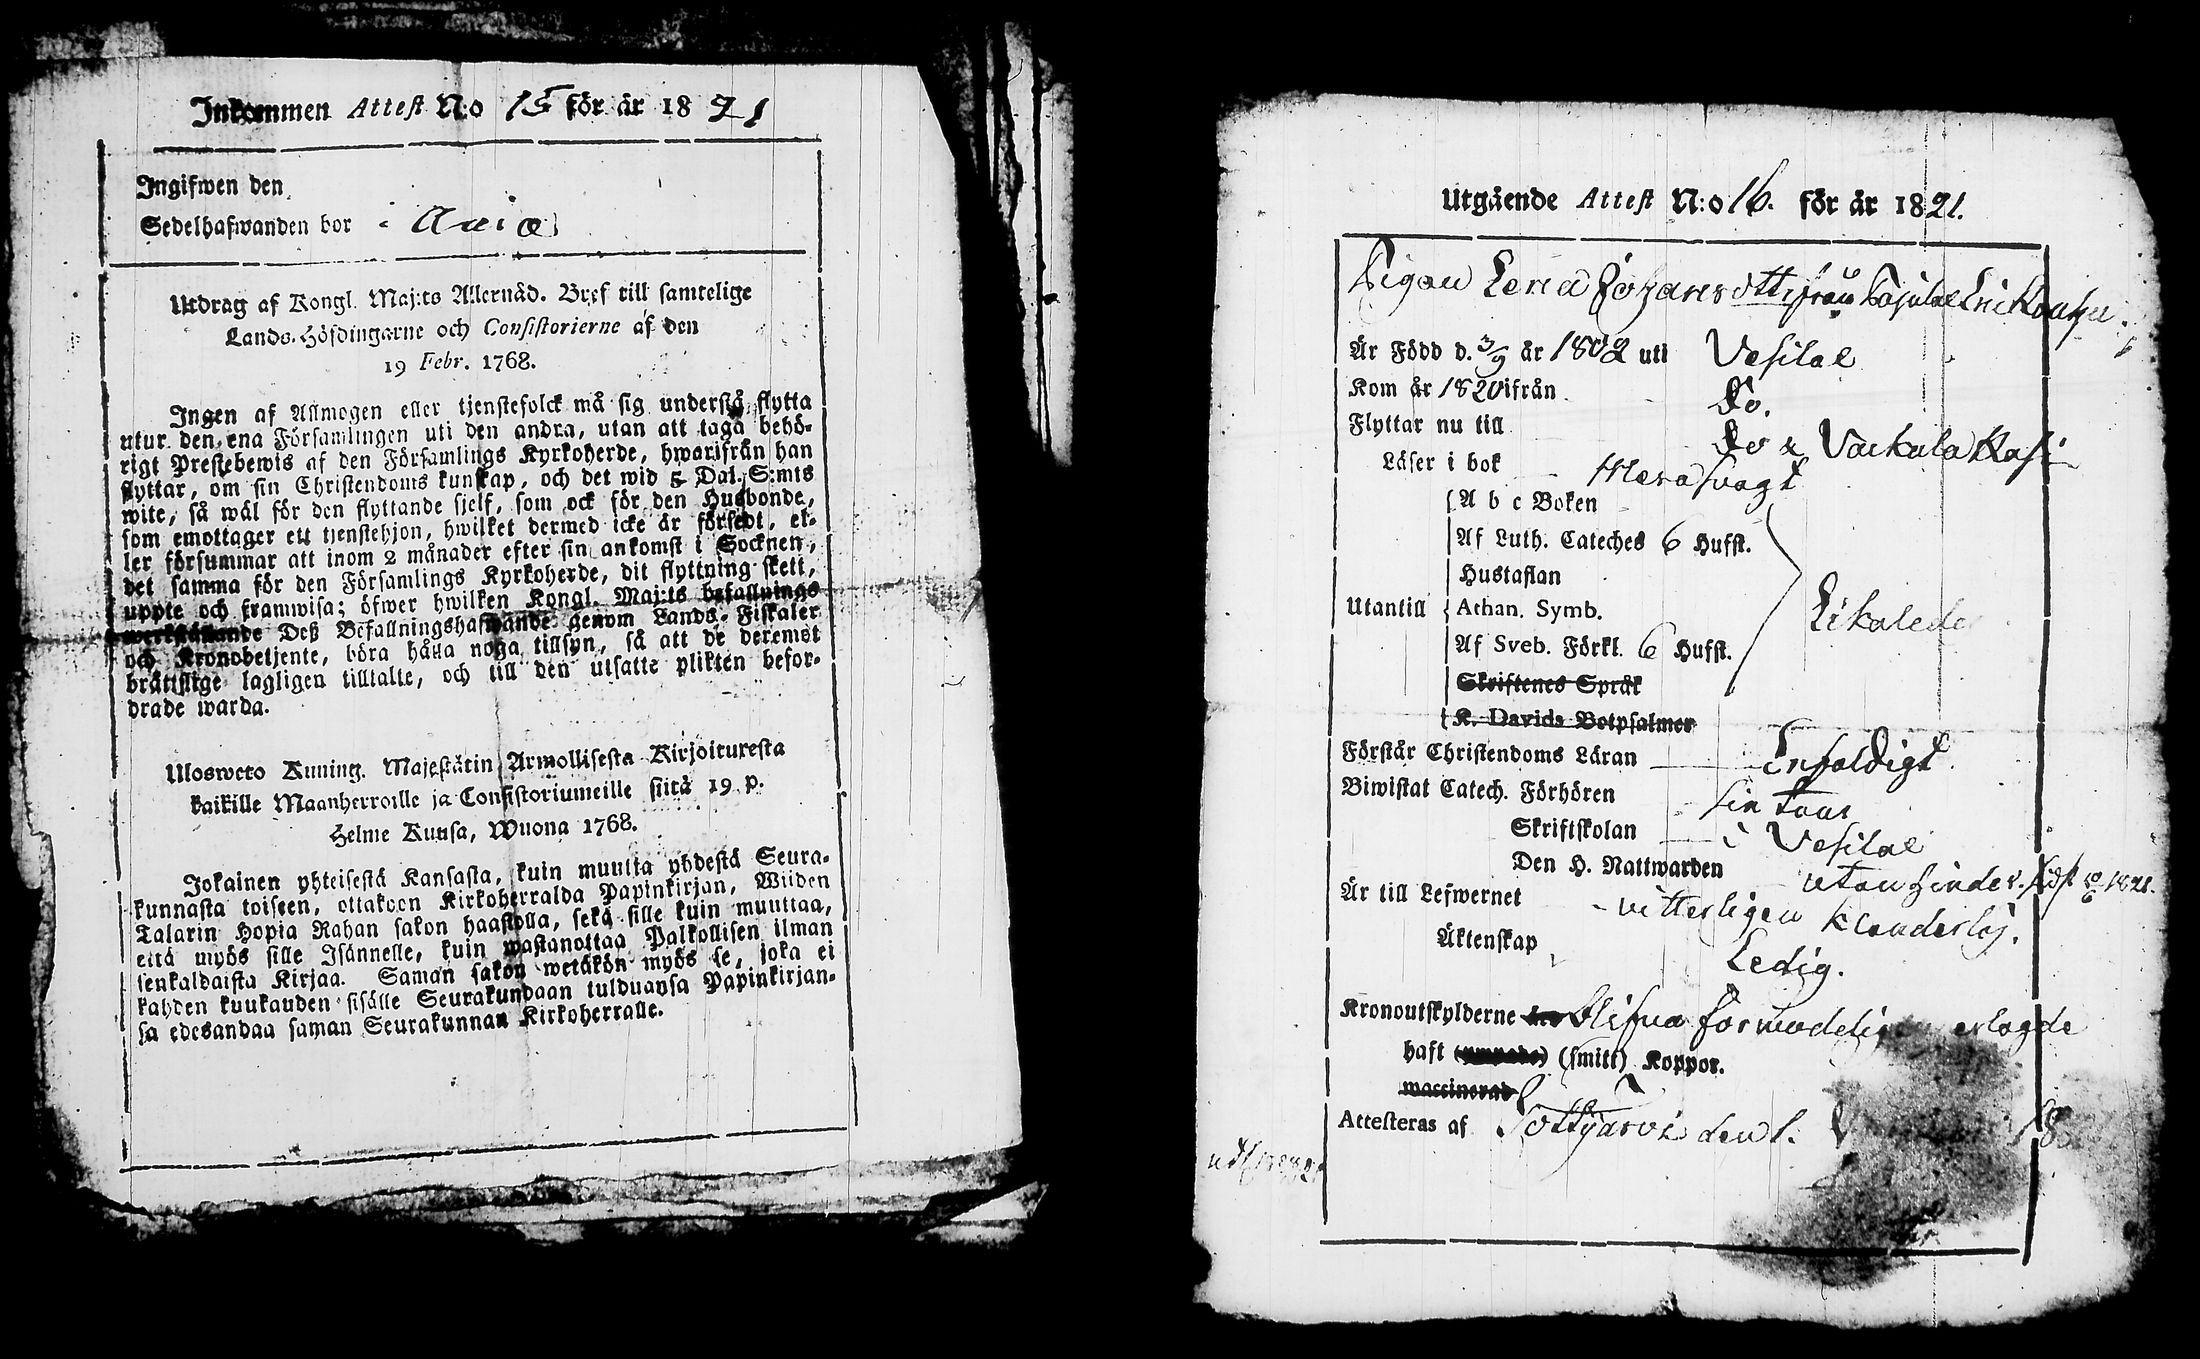 Inkommen Attest N:o 15 för år 1821
Ingifwen den
Sedelhafwanden bor i
Utdrag af Kongl. Maj:ts Allernåd. Bref till samtelige
Lands-Höfdingarne och Consistorierne af den
19 Febr. 1768.
Ingen af Allmogen eller tjenstefolck må sig understå flytta
utur den ena Församlingen uti den andra, utan att taga behö-
rigt Prestebewis af den Församlings Kyrkoherde, hwarifrån han
flyttar, om sin Christendoms kunskap, och det wid 5 Dal. S:mts
wite, så wäl för den flyttande sjelf, som ock för den Husbonde,
som emottager ett tjenstehjon, hwilket dermed icke är försedt, el-
ler försummar att inom 2 månader efter sin ankomst i Socknen,
det samma för den Församlings Kyrkoherde, dit flyttning skett,
uppte och framwisa; öfwer hwilken Kongl. Maj:ts befallnings
werkställande Deß Befallningshafwande genom Lands-Fiskaler
och Kronobetjente, böra hålla noga tillsyn, så att de deremot
bråttslige lagligen tilltalte, och till den utsatte plikten befor-
drade warda.
Ulosweto Kuning. Majestätin Armollisesta Kirjoituresta
kaikille Maanherroille ja Consistoriumeille siitä 19 p.
Helme Kuusa, Wuona 1768.
Jokainen yhteisestä Kansasta, kuin muutta yhdestä Seura-
kunnasta toiseen, ottakoon Kirkoherralda Papinkirjan, Wiiden
Talarin Hopia Rahan sakon haastolla, sekä sille kuin muuttaa,
että myös sille Isännelle, kuin wastanottaa Palkollisen ilman
senkaldaista Kirjaa. Saman sakon wetäkön myös se, joka ei
kahden kuukauden sisälle Seurakundaan tulduansa Papinkirjan-
sa edesandaa saman Seurakunnan Kirkoherralle.
Utgående Attest N:o 16. för år 1821.
Pigan Lena Johansdtt: från
Är Född d. 3/9 år 1802 uti Vesilax
Kom år 1820 ifrån Do.
Flyttar nu till Do &
Läser i bok Mera svagt
A b c Boken
Af Luth. Cateches 6 Hufst.
Hustaflan
Utantill Athan. Symb. Likaledes
Af Sveb. Förkl. 6 Hufst.
Skriftenes Språk
K. Davids Botpsalmer
Förstår Christendoms Läran Enfaldigt
Biwistat Catech. Förhören
Skriftskolan i Vesilax
Den H. Nattwarden utan hinder.
Är till Lefwernet vitterligen klanderlös.
Äktenskap Ledig.
Kronoutskylderne blifva förmodeligen erlagde
haft (smitt) Koppor.
waccinerad
Attesteras af Tottijärvi den 1.